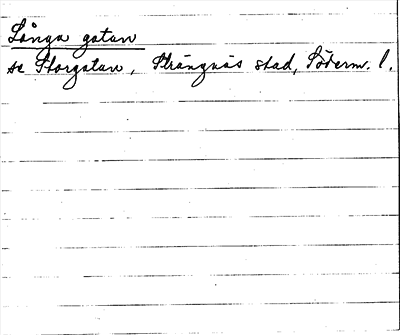 Långa gatan
se Storgatan, Strängnäs stad, Söderm. l.